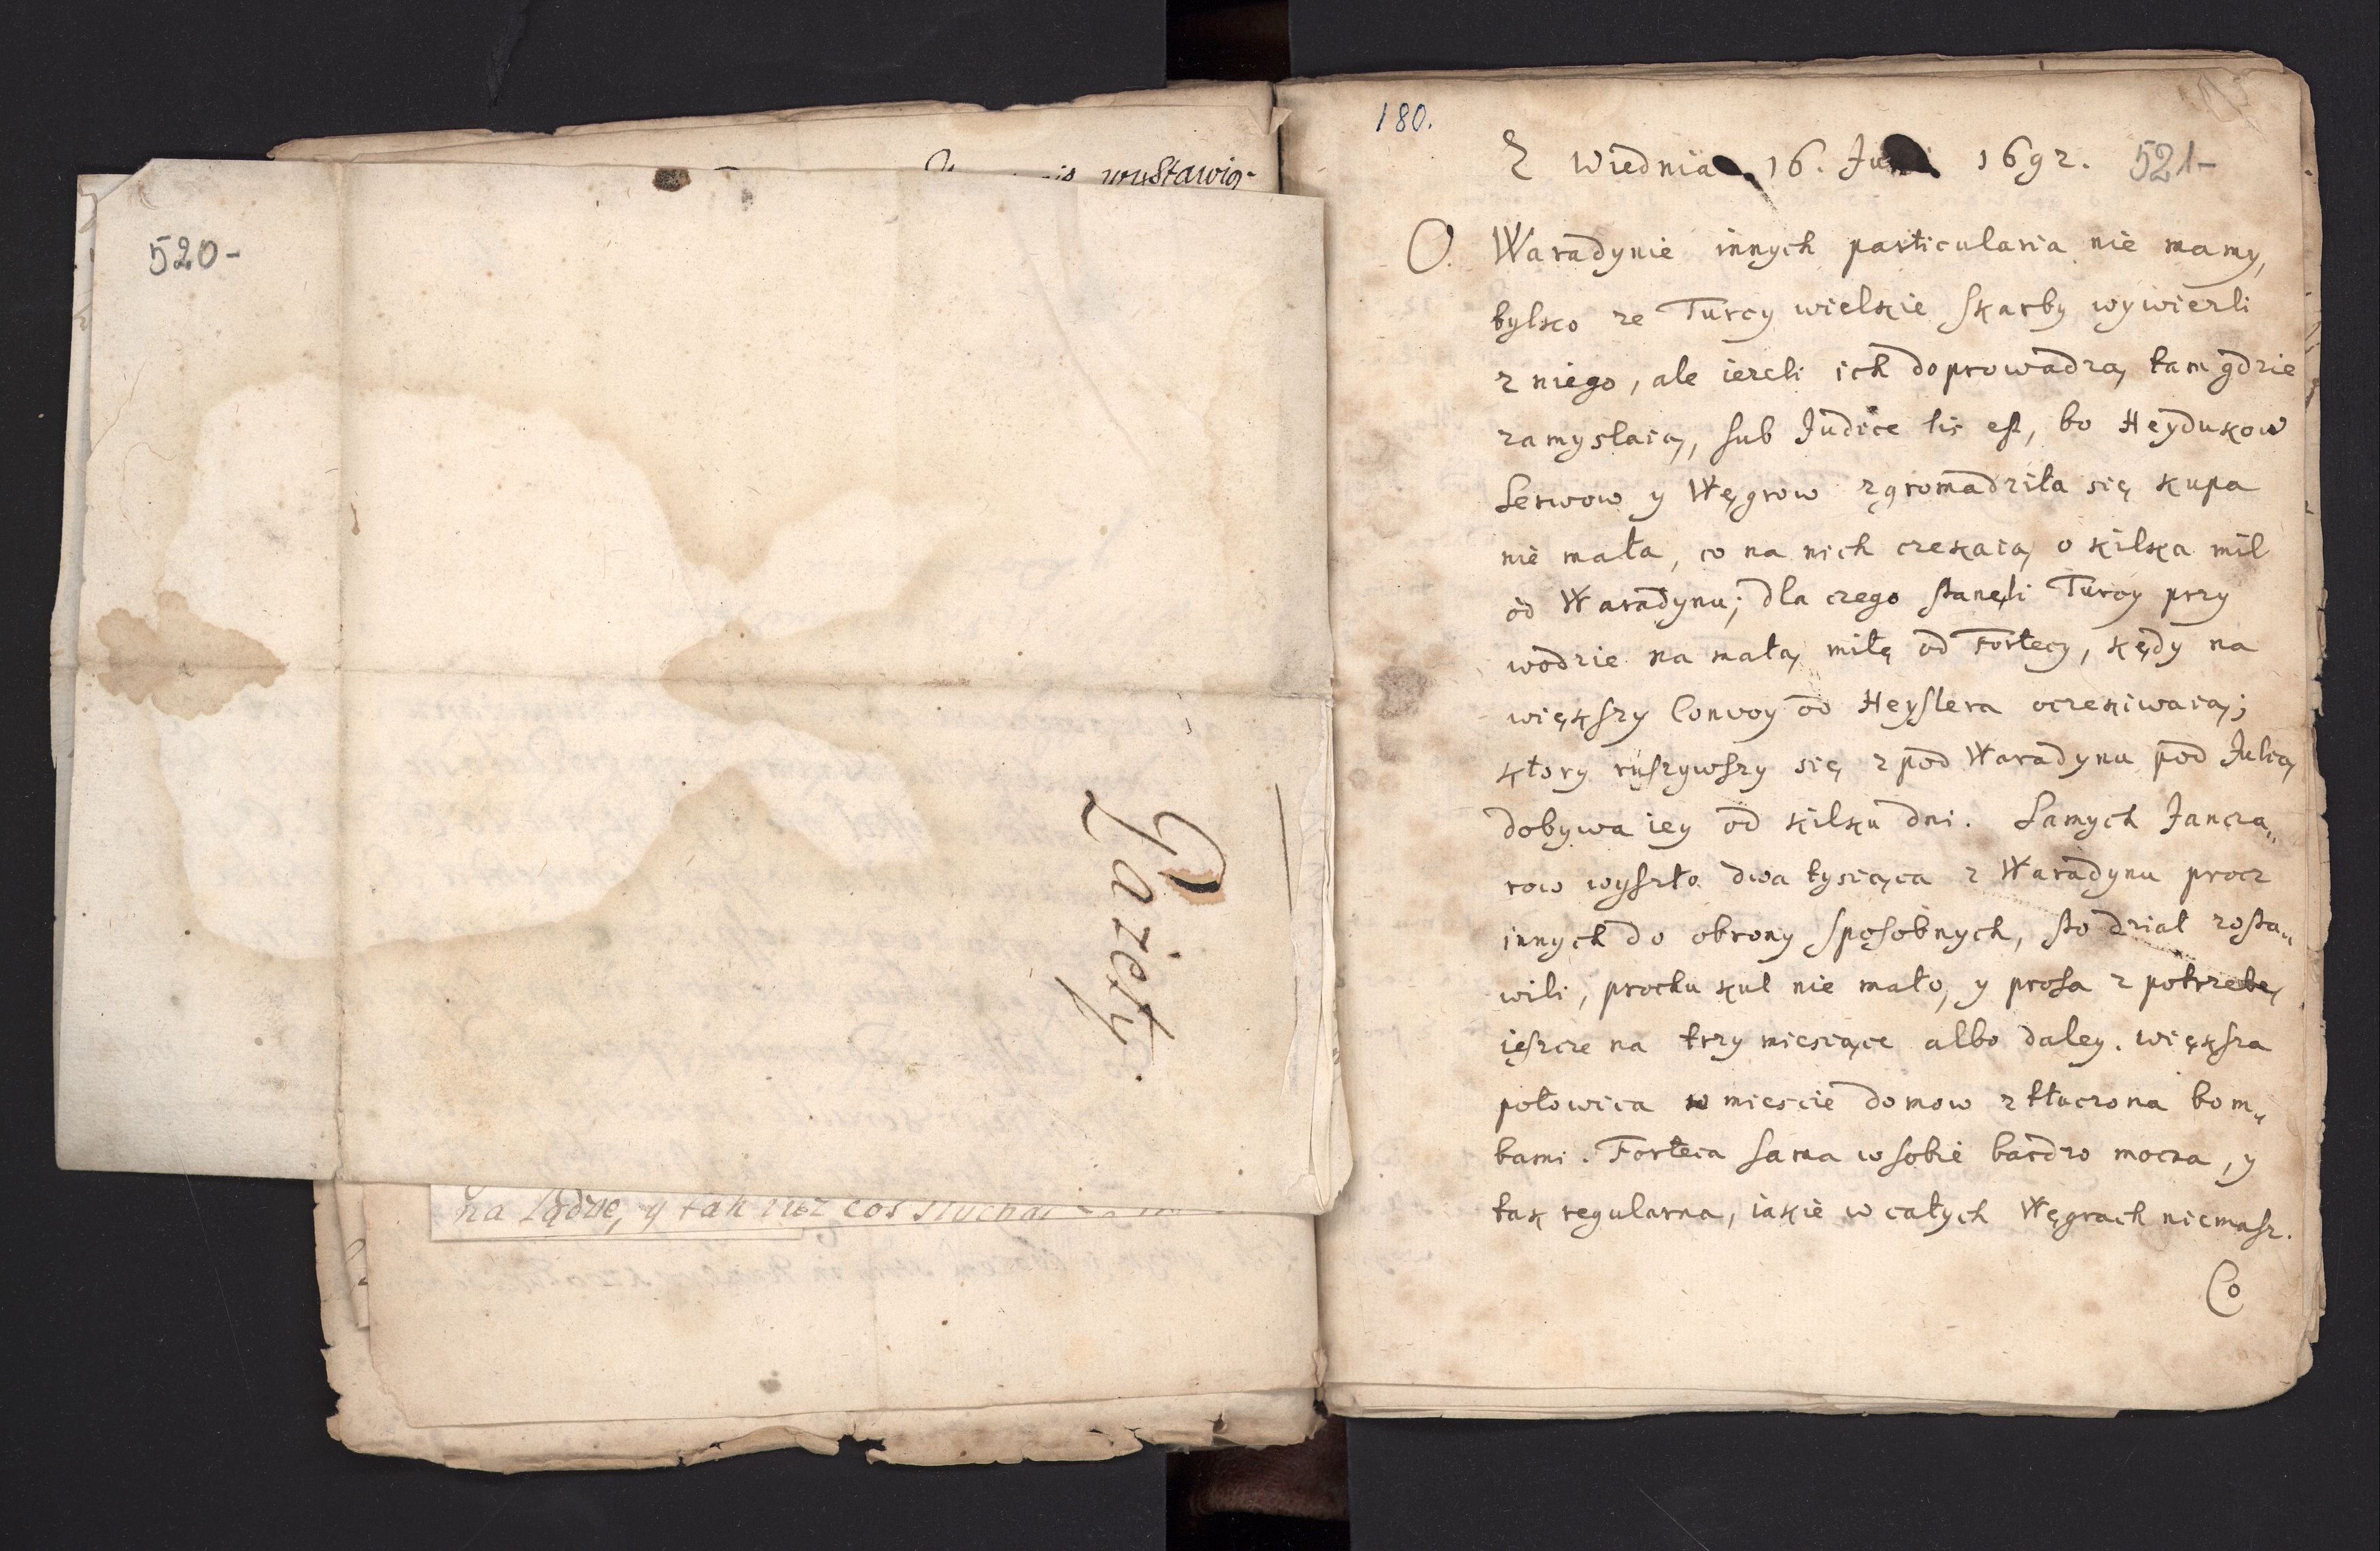 wystawię-
520-
Gazety.
na Lądzie, y tak iuz cos słuchac
180.
Z Wiednia 16. 1692. 521-
O. Waradynie innych particularia nie mamy,
tylko ze Turcy wielkie skarby wywiezli
z niego, ale iezeli ich doprowadzą tam gdzie
zamyslaią, sub Judice lis est, bo Heydukow
Serwow y Węgrow zgromadziła się kupa
nie mała, co na nich czekaią o kilka mil
od Waradynu; dla czego stanęli Turcy przy
wodzie na małą milę od Fortecy, kędy na
większy Convoy od Heyslera oczekiwaią;
ktory ruszywszy się z pod Waradynu pod Julią
dobywa iey od kilku dni. Samych Jancza„
row wyszło dwa tysiąca z Waradynu procz
innych do obrony sposobnych, sto dział zosta„
wili, prochu kul nie mało, y prosa z potrzebę
ieszcze na trzy miesiące albo daley. większa
połowica w miescie domow ztłuczona bom„
bami. Forteca sama w sobie bardzo mocna, y
tak regularna, iakie w całych Węgrach niemasz.
Co